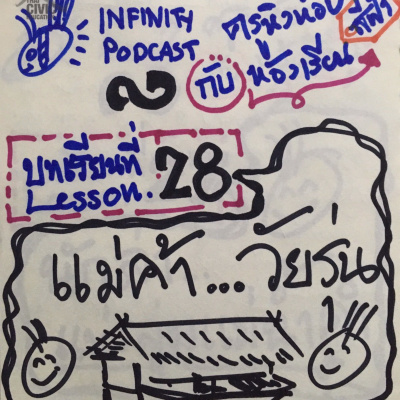 THAI
CIVIC
EDUCATION
INFINITY
PODCAST
กับ
ครูนิวห้อง
สีฟ้า
ห้องเรียน
บทเรียนที่
Lesson. 28
แม่ค้า...วัยรุ่น